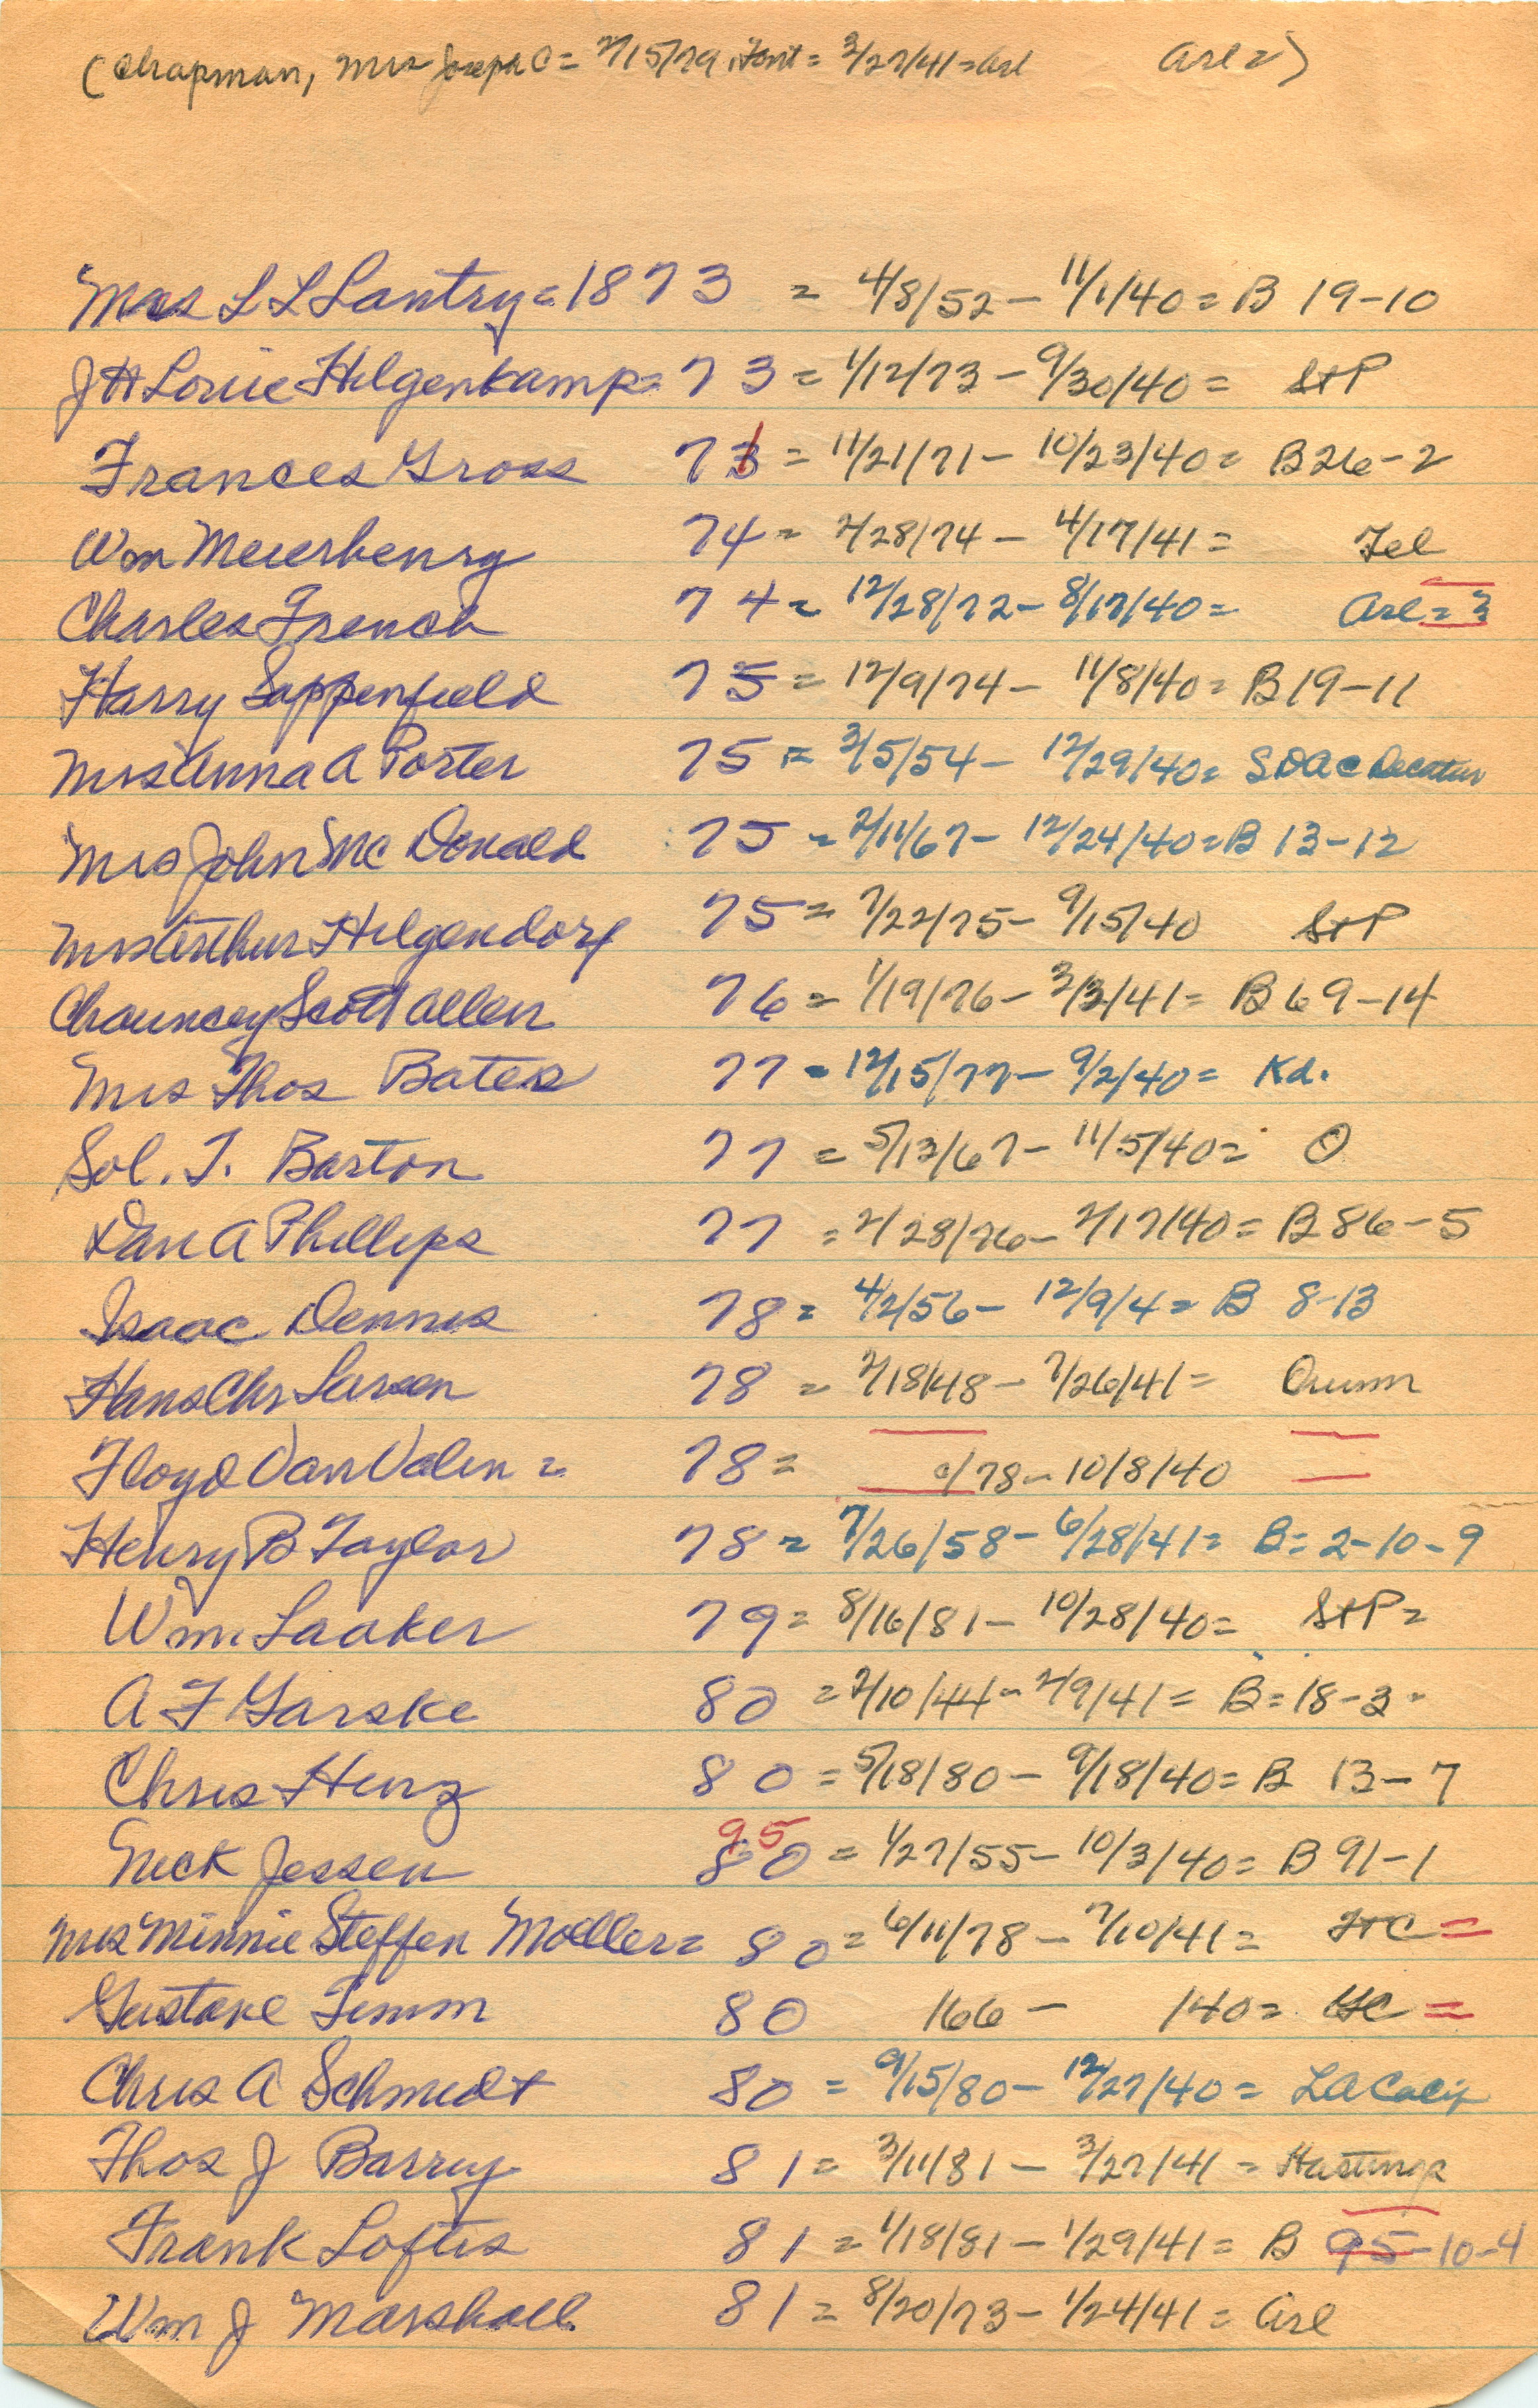 (Chapman, Mrs Joseph C = 2/15/79, Font = 3/27/41 = Arl Arl =)
Mrs L L Lantry = 1873 = 4/8/52 - 11/1/40 = B 19-10
J H Louie Hilgenkamp = 73 = 1/12/73 - 9/30/40 = StP
Frances Gross 71 = 11/21/71 - 10/23/40 = B26-2
Wm Meierhenry 74 = 2/28/74 - 4/17/41 = Tel
Charles French 74 = 12/28/72 - 8/17/40 = Arl = 3
Harry Sappenfield 75 = 12/9/74 - 11/8/40 = B19-11
Mrs Anna A Porter 75 = 3/5/54 - 12/29/40 = SDAC Decatur
Mrs John Mc Donald 75 = 2/11/67 - 12/24/40 = B 13-12
Mrs Arthur Hilgendorf 75 = 7/22/75 - 9/15/40 StP
Chauncey Scott Allen 76 = 1/19/76 - 3/3/41 = B69-14
Mrs Thos Bates 77 = 12/15/77 - 9/2/40 = Kd.
Sol. T. Barton 77 = 5/13/67 - 11/5/40 = O
Dan A Phillips 77 = 2/28/76 - 2/17/40 = B86-5
Isaac Dennis 78 = 4/2/56 - 12/9/4 = B 8-13
Hans Chr Larsen 78 = 2/18/48 - 7/26/41 = Orum
Floyd Van Valin = 78 = /78 - 10/8/40
Henry B Taylor 78 = 7/26/58 - 6/28/41 = B = 2-10-9
Wm. Laaker 79 = 8/16/81 - 10/28/40 = StP =
A F Garske 80 = 2/10/44 - 2/9/41 = B = 18-3
Chris Hinz 80 = 5/18/80 - 9/18/40 = B 13-7
95
Nick Jessen 80 = 1/27/55 - 10/3/40 = B 91-1
Mrs Minnie Steffen Moeller = 80 = 6/11/78 - 7/10/41 = FtC =
Gustave Timm 80 166 - 140 = =
Chris A Schmidt 80 = 9/15/80 - 12/27/40 = LA Calif
Thos J Barry 81 = 3/11/81 - 3/27/41 = Hastings
Frank Loftis 81 = 1/18/81 - 1/29/41 = B 95-10-4
Wm J Marshall 81 = 8/20/73 - 1/24/41 = Arl